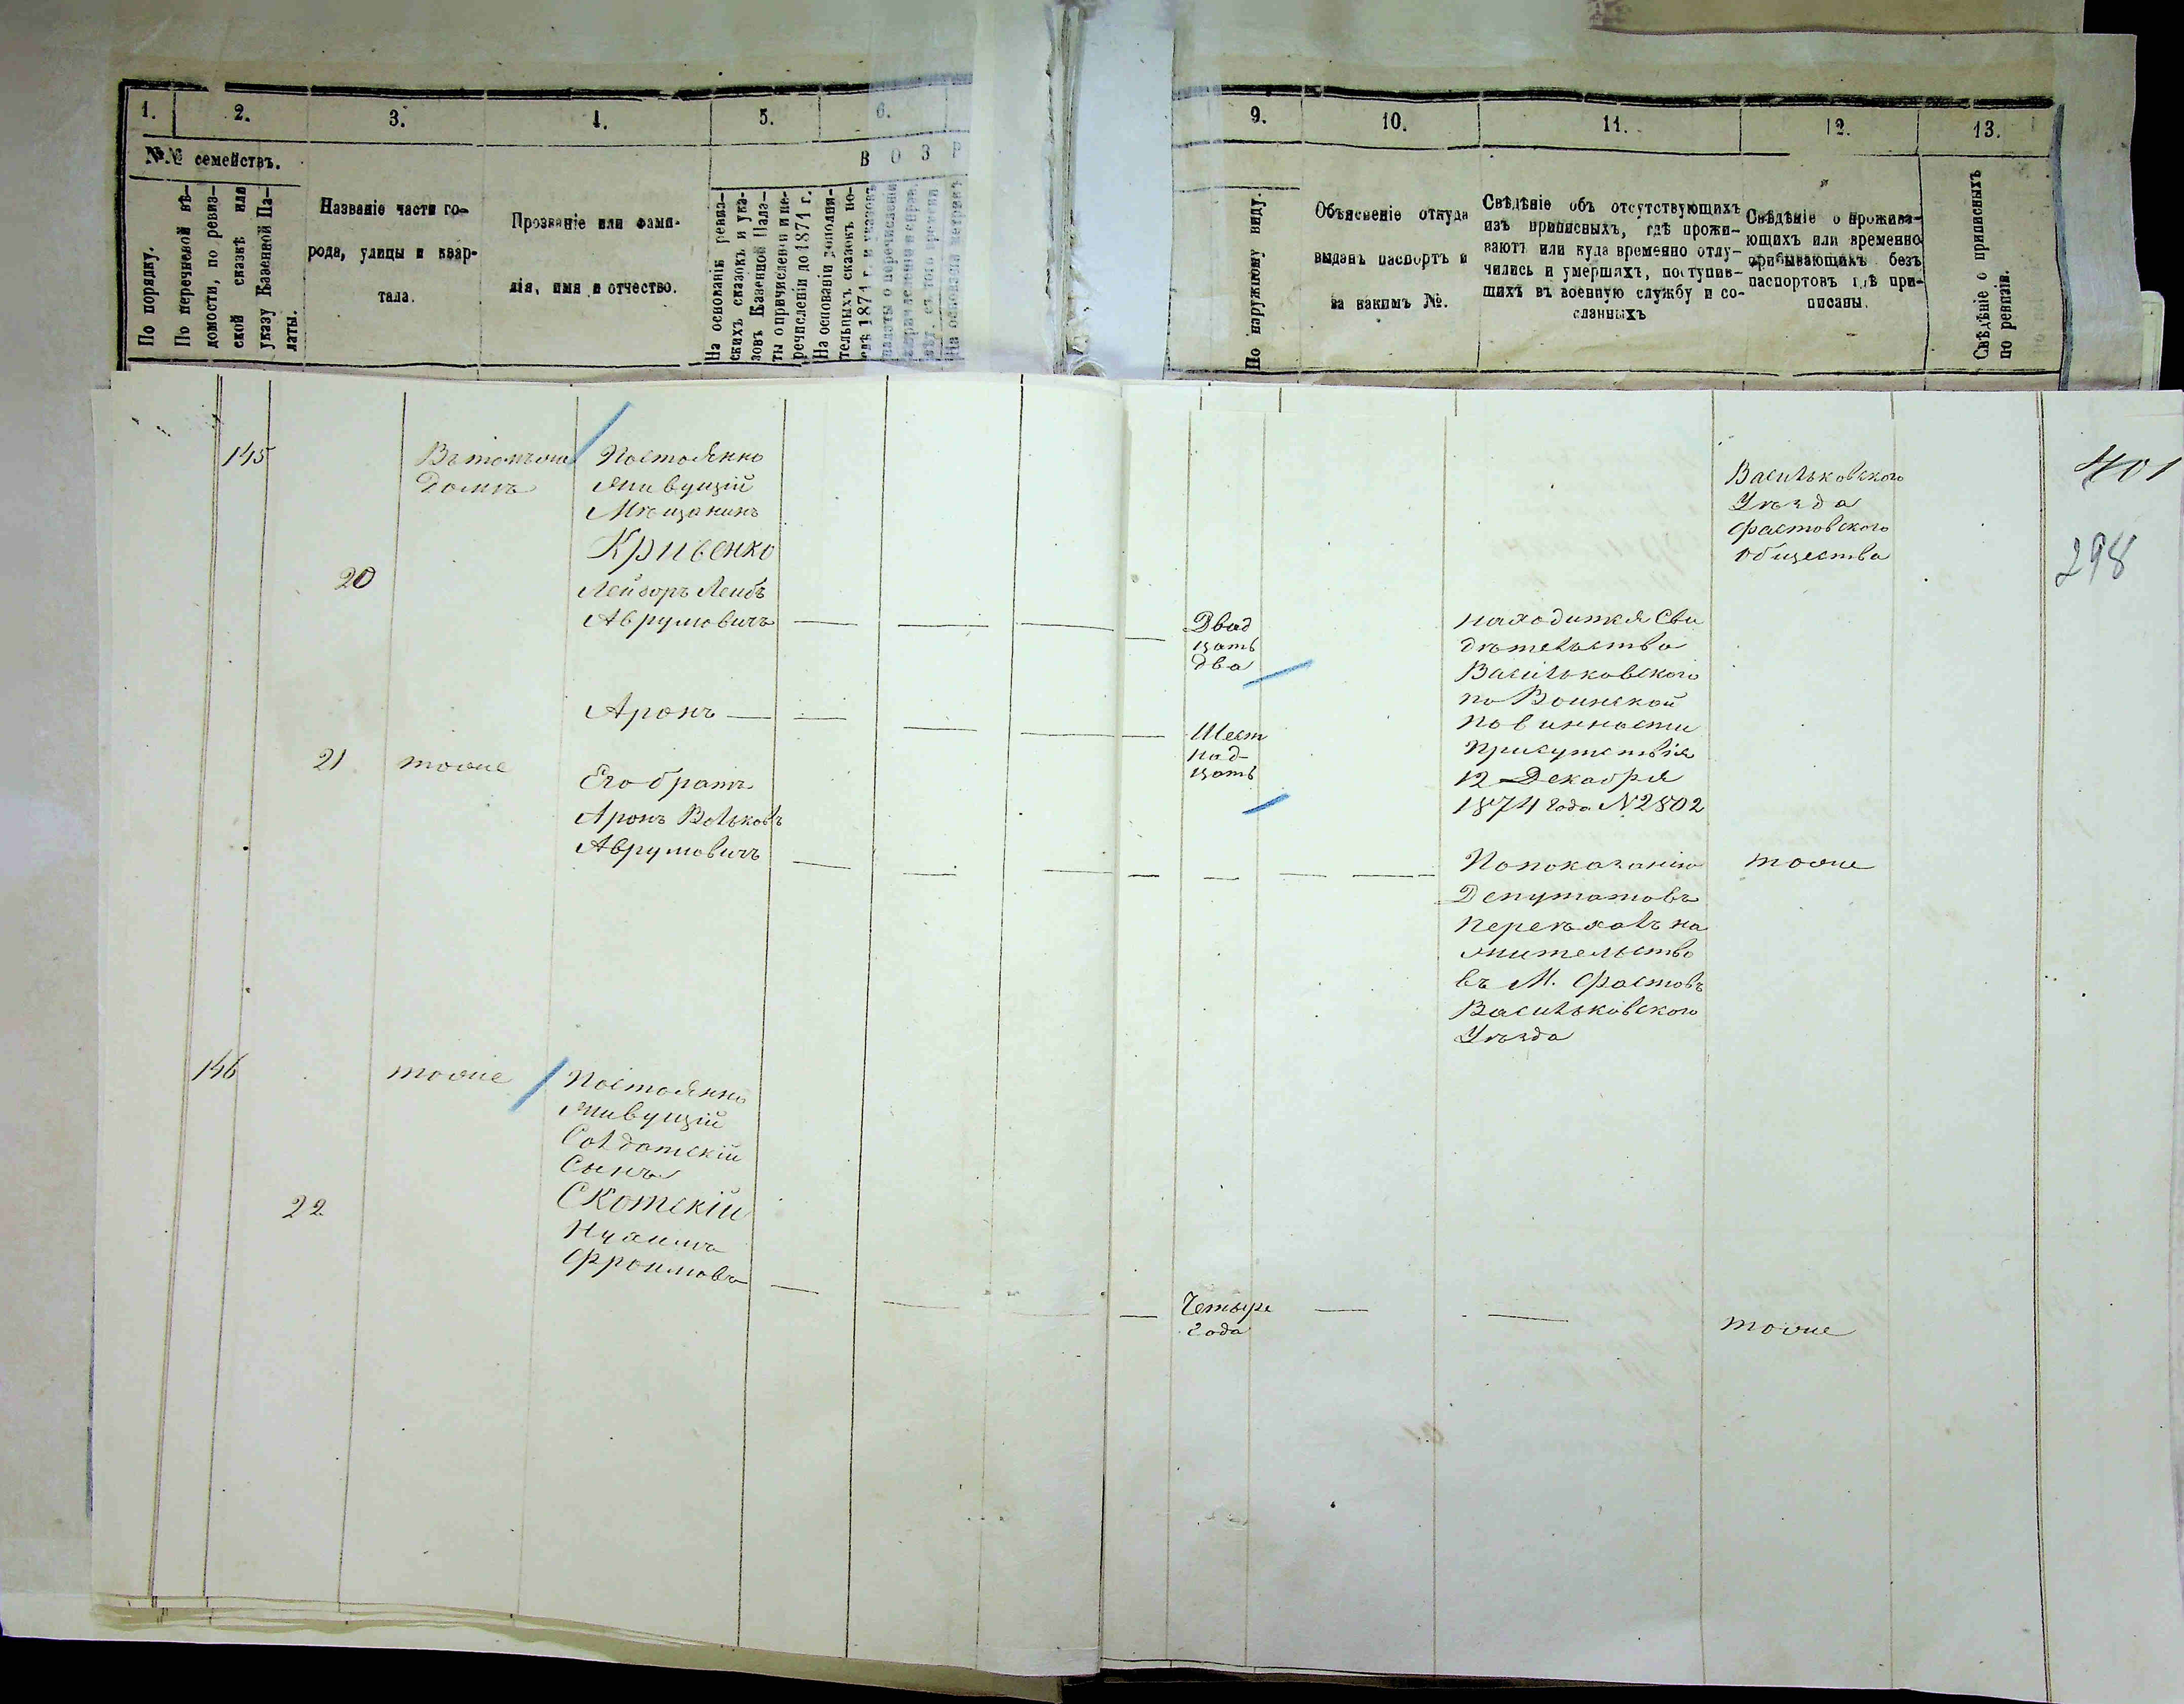 1.
2.
3.
4.
5.
6.
9.
10.
11.
12.
13.
№№ семействъ.
В О З Р
По порядку.
По перечневой вѣ-
домости, по ревиз-
ской сказкѣ или
указу Казенной Па-
латы.
Названіе части го-
рода, улицы и квар-
тала.
Прозваніе или фами-
лія, имя и отчество.
На основаніи ревиз-
скихъ сказокъ и ука-
зовъ Казенной Пала-
ты о причисленіи и пе-
речисленіи до 1871 г.
На основаніи дополни-
тельныхъ сказокъ по-
слѣ 1871 г. и указовъ
По наружному виду.
Объясненіе откуда
выданъ паспортъ и
за какимъ №.
Свѣдѣніе объ отсутствующихъ
изъ приписныхъ, гдѣ прожи-
ваютъ или куда временно отлу-
чились и умершихъ, поступив-
щихъ въ военную службу и со-
сланныхъ
Свѣдѣніе о прожива-
ющихъ или временно
прибывающихъ безъ
паспортовъ гдѣ при-
писаны.
Свѣдѣніе о приписныхъ
по ревизіи.
401
298
145
Въ томъ же
Домѣ
Постоянно
живущій
Мѣщанинъ
Кривенко
20
Лейзоръ Лейбъ
Аврумовичъ
Двад
цать
два
находится Сви
дѣтельство
Васильковского
по Воинской
повинности
Присутствія
12 Декабря
1874 года №2802
Васильковского
Уѣзда
Фастовского
Общества
Аронъ
Шест
над-
цать
21
тоже
Его братъ
Аронъ Вольковъ
Аврумовичъ
По показанію
Депутатовъ
переѣхалъ на
жительство
въ М. Фастовъ
Васильковского
Уѣзда
тоже
146
тоже
Постоянно
живущій
Солдатскій
Сынъ
Скотскій
22
Нухимъ
Фроимовъ
Четыре
года
тоже